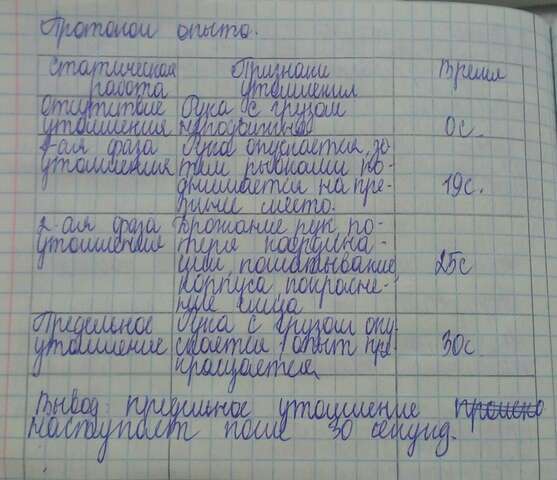 Протокол опыта.
Статическая работа
Признаки утомления
Время
Отсутствие утомления
Рука с грузом неподвижна
0с.
1-ая фаза утомления
Рука опускается, за-
тем рывками по-
днимается на пре-
жнее место.
19с.
2-ая фаза утомления
Дрожание рук, по-
теря координа-
ции, пошатывание
корпуса, покрасне-
ние лица
25с
Предельное утомление
Рука с грузом опу-
скается, опыт пре-
кращается
30с
Вывод: предельное утомление
наступает после 30 секунд.